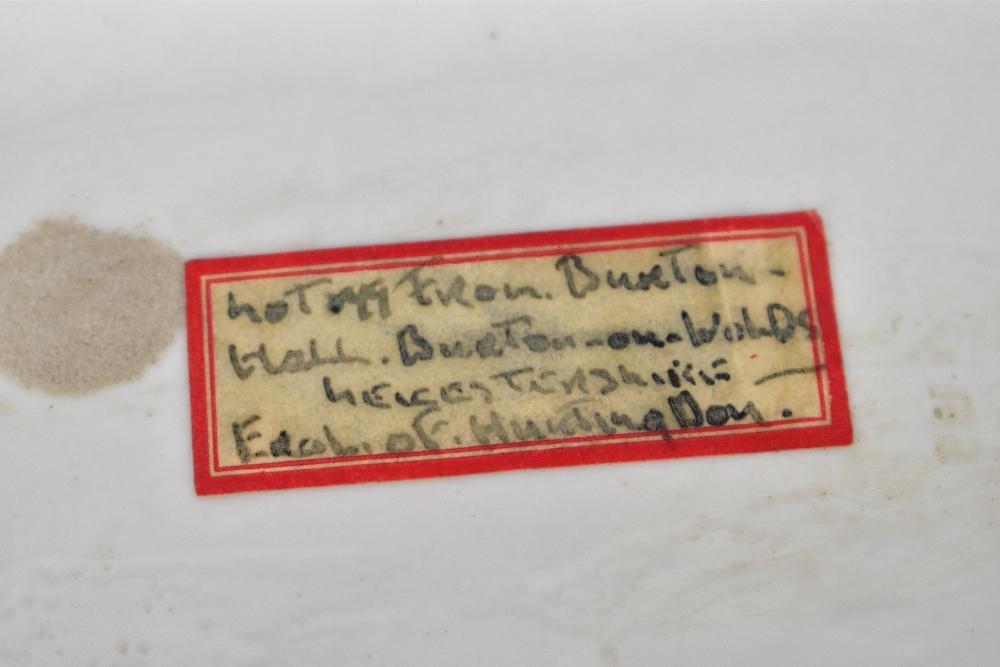 Lot 799 From. Burton-
Hall. Burton-on-Wolds
Leicestershire
Earl. of. Huntingdon.